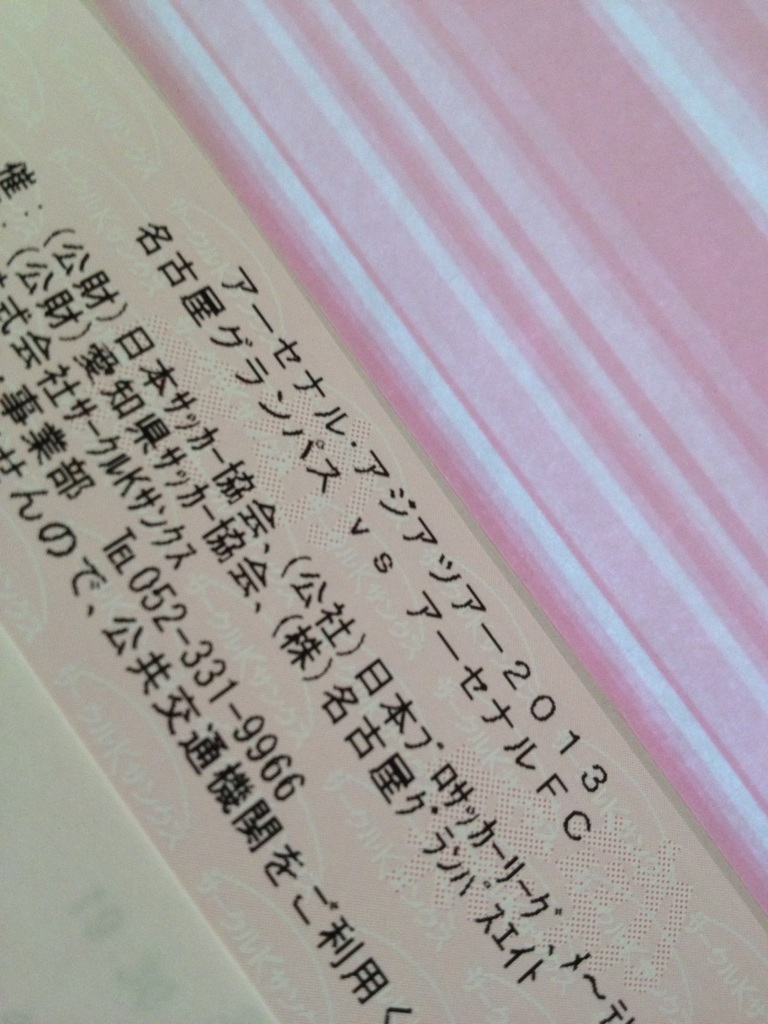 アーセナル・アジアツアー2013
名古屋グランパス vs アーセナルFC
催:(公財)日本サッカー協会、(公社)日本プロサッカーリーグ、メ〜テレ
(公財)愛知県サッカー協会、(株)名古屋グランパスエイト
式会社サークルKサンクス
事業部 TEL052-331-9966
せんので、公共交通機関をご利用く
サークルKサンクス